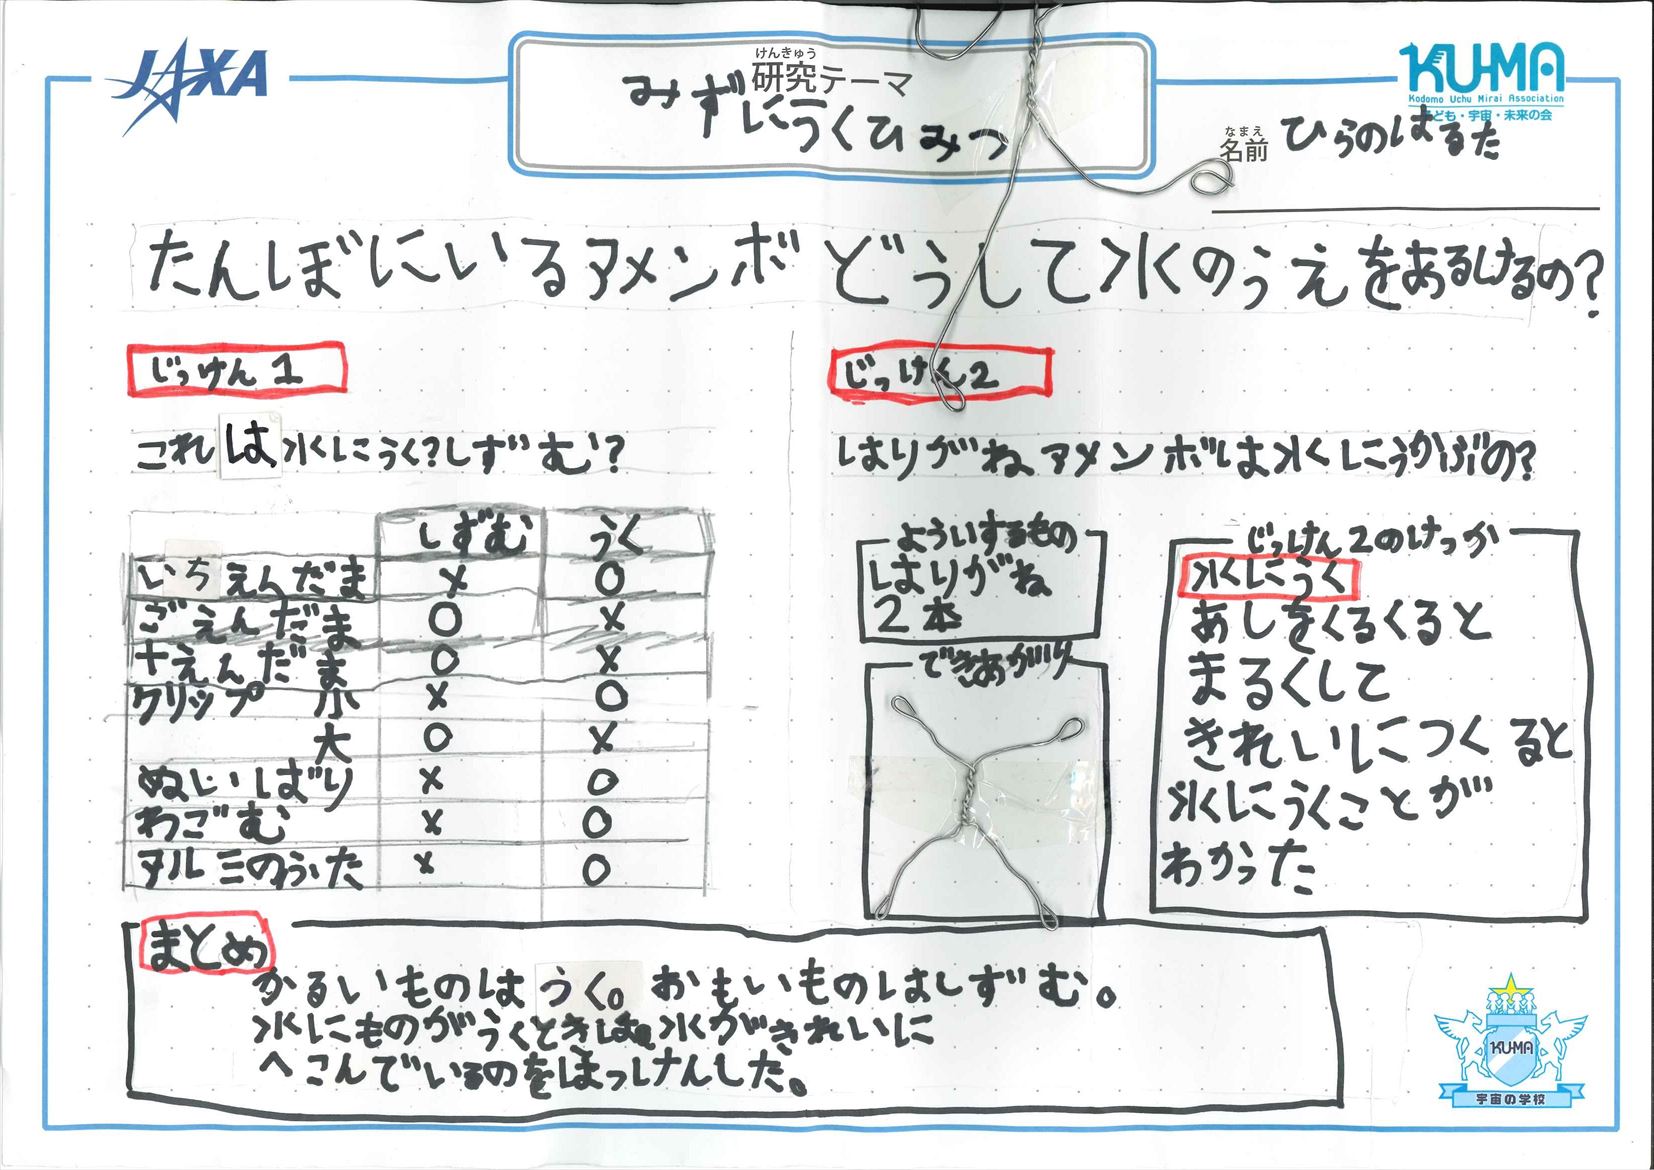 JAXA
けんきゅう
研究テーマ
みずにうくひみつ
KU-MA
Kodomo Uchu Mirai Association
子ども・宇宙・未来の会
なまえ
名前 ひらのはるた
たんぼにいるアメンボどうして水のうえをあるけるの?
じっけん1
これは水にうく?しずむ?
しずむ うく
いちえんだま × ○
ごえんだま ○ ×
十えんだま ○ ×
クリップ 小 × ○
大 ○ ×
ぬいばり × ○
わごむ × ○
アルミのふた × ○
じっけん2
はりがねアメンボは水にうかぶの?
よういするもの
はりがね
2本
できあがり
じっけん2のけっか
水にうく
あしをくるくると
まるくして
きれいにつくると
水にうくことが
わかった
まとめ
かるいものはうく。おもいものはしずむ。
水にものがうくときは水がきれいに
へこんでいるのをはっけんした。
KU-MA
宇宙の学校